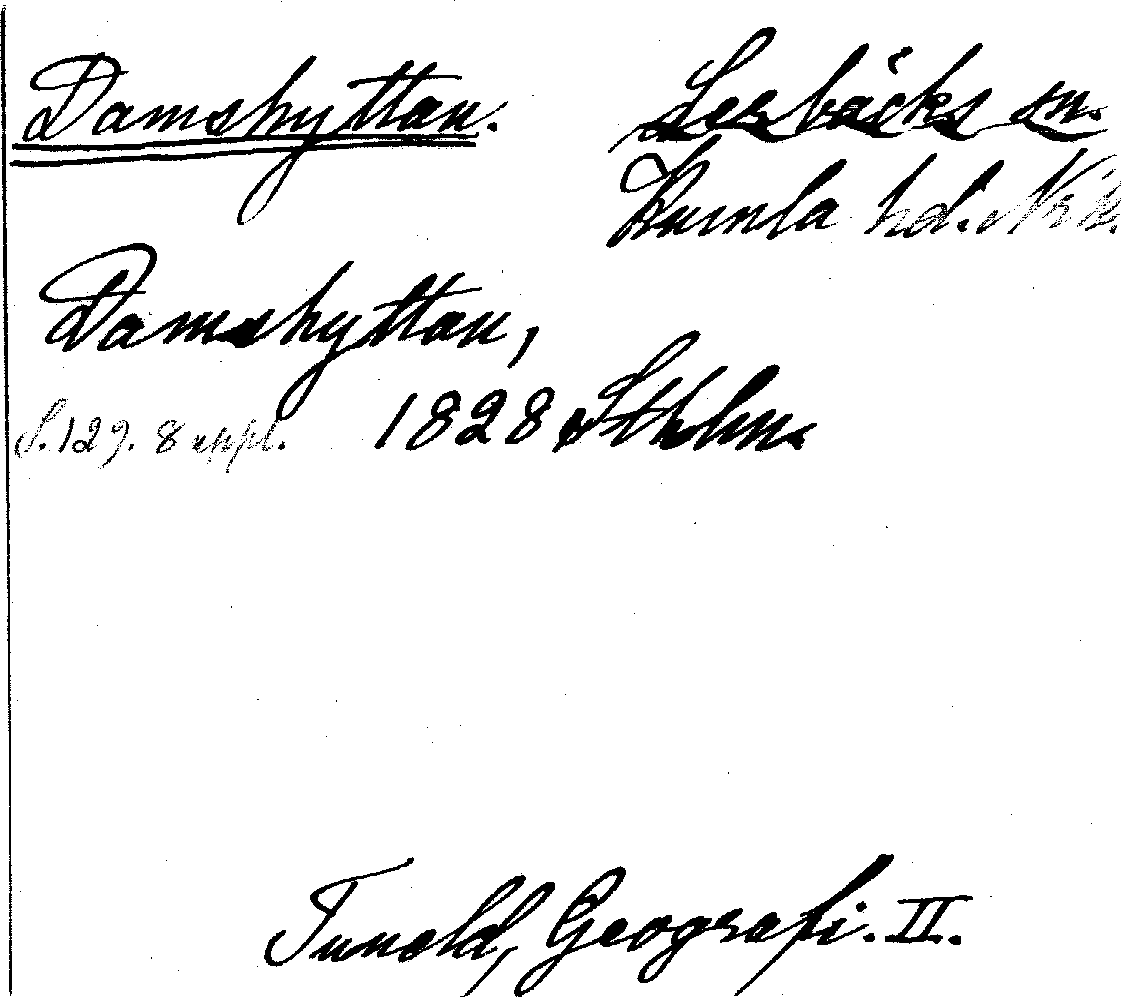 Damshyttan.
Lerbäcks sn.
Kumla hd. Nrk.
Damshyttan,
S. 129. 8 uppl. 1828 Sthlm.
Tuneld, Geografi. II.